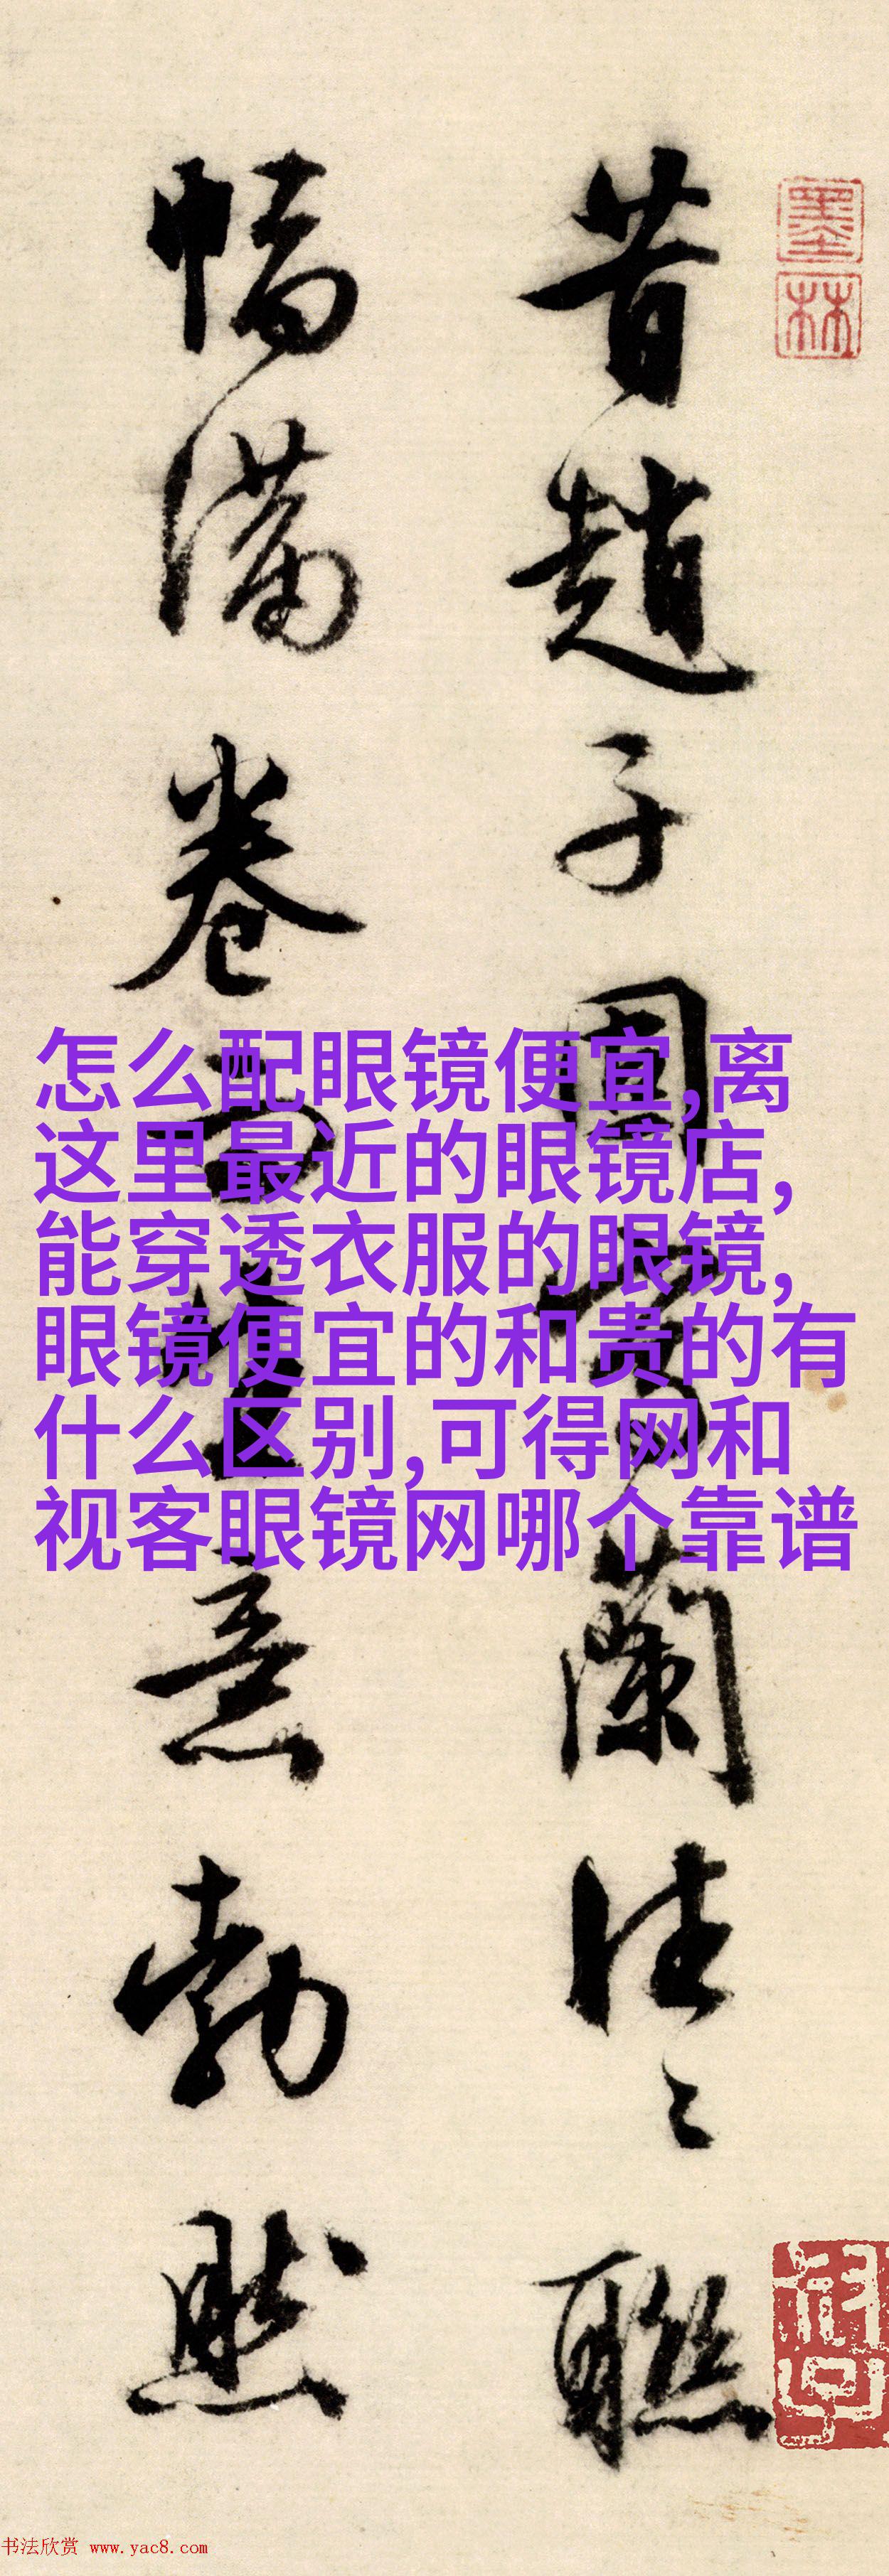 昔趙子固寫蘭往々聯
幅滿卷而生意勃然
墨林
怎么配眼镜便宜,离
这里最近的眼镜店,
能穿透衣服的眼镜,
眼镜便宜的和贵的有
什么区别,可得网和
视客眼镜网哪个靠谱
书法欣赏 www.yac8.com